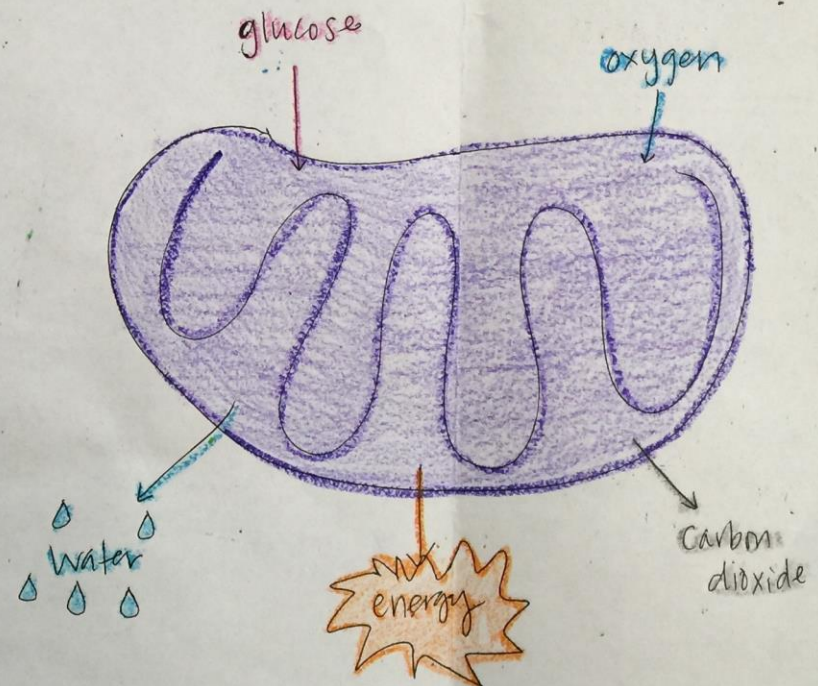 glucose
oxygen
Water
energy
Carbon
dioxide